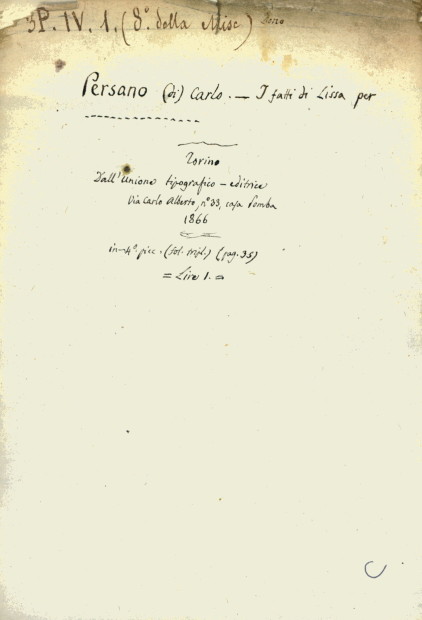 3P. IV. 1, (8º. della Misc) Dono
Persano (di) Carlo. — I fatti di Lissa per
Torino
Dall'Unione tipografico-editrice
Via Carlo Alberto, nº 33, casa Pomba
1866
in-4º. picc. (fol. tripl.) (pag. 35)
= Lire 1. =